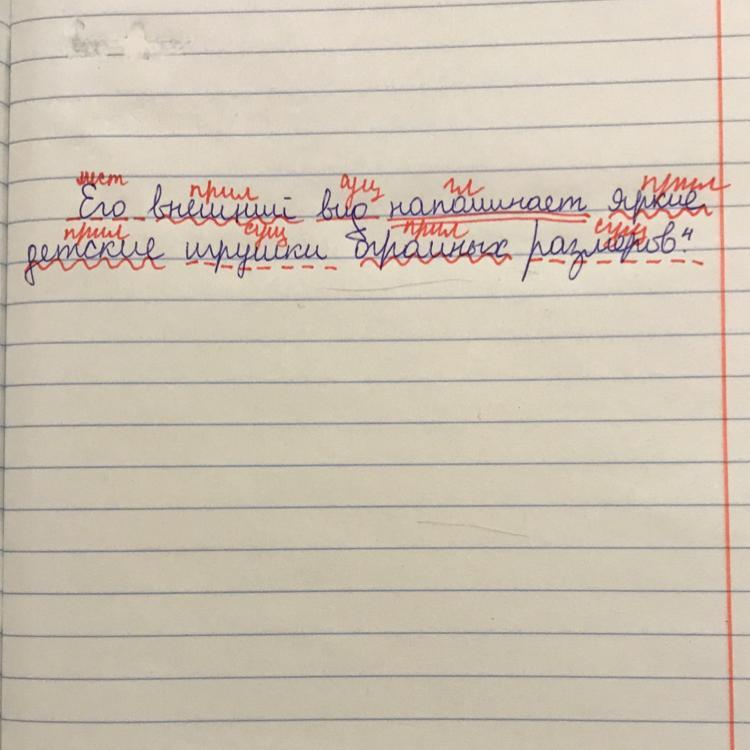 мест прил сущ гл прил
Его внешний вид напоминает яркие
прил сущ прил сущ
детские игрушки огромных размеров⁴